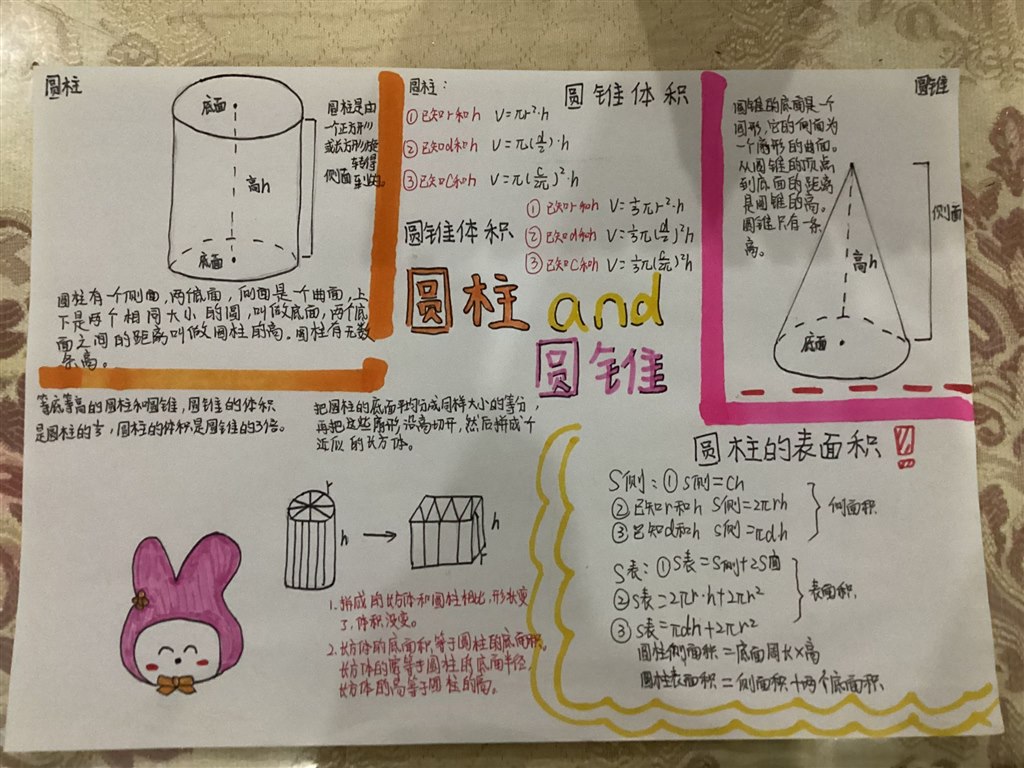 圆柱
底面
高h
底面
侧面
圆柱是由
一个正方形
或长方形旋
转得
到的。
圆柱有一个侧面，两个底面，侧面是一个曲面，上
下是两个相同大小的圆，叫做底面，两个底
面之间的距离叫做圆柱的高。圆柱有无数
条高。
圆柱：
圆锥体积
①已知r和h V=πr²·h
②已知d和h V=π(d/2)·h
③已知C和h V=π(C/2π)²·h
圆锥体积
①已知r和h V=1/3πr²·h
②已知d和h V=1/3π(d/2)²h
③已知C和h V=1/3π(C/2π)²h
圆柱and
圆锥
圆锥
圆锥的底面是一个
圆形，它的侧面为
一个扇形的曲面。
从圆锥的顶点
到底面的距离
是圆锥的高。
圆锥只有一条
高。
侧面
高h
底面
等底等高的圆柱和圆锥，圆锥的体积
是圆柱的1/3，圆柱的体积是圆锥的3倍。
把圆柱的底面平均分成同样大小的等分，
再把这些扇形沿高切开，然后拼成个
近似的长方体。
r
h
h
r
1.拼成的长方体和圆柱相比，形状变
了，体积没变。
2.长方体的底面积等于圆柱的底面积。
长方体的宽等于圆柱的底面半径
长方体的高等于圆柱的高。
圆柱的表面积!
S侧：①S侧=Ch
②已知r和h S侧=2πrh
③已知d和h S侧=πdh
侧面积
S表：①S表=S侧+2S底
②S表=2πr·h+2πr²
③S表=πdh+2πr²
表面积
圆柱侧面积=底面周长×高
圆柱表面积=侧面积+两个底面积